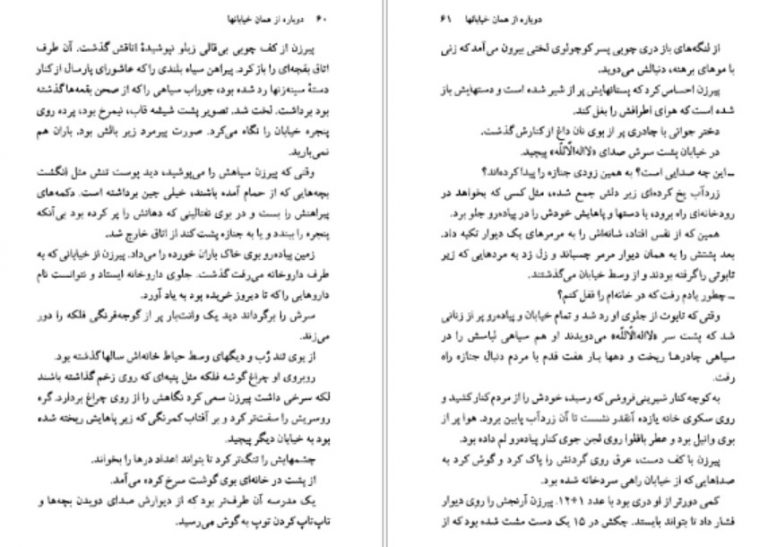 ۶۰ دوباره از همان خیابانها
پیرزن از کف چوبی بی‌قالی زیلو نپوشیدهٔ اتاقش گذشت. آن طرف
اتاق بقچه‌ای را باز کرد. پیراهن سیاه بلندی را که عاشورای پارسال از کنار
دستهٔ سینه‌زنها رد شده بود، جوراب سیاهی را که از صحن بقعه‌ها گذشته
بود برداشت. لخت شد. تصویر پشت شیشه قاب، نیمرخ بود، پرده روی
پنجره خیابان را نگاه می‌کرد. صورت پیرمرد زیر بالش بود. باران هم
نمی‌بارید.
وقتی که پیرزن سیاهش را می‌پوشید، دید پوست تنش مثل انگشت
بچه‌هایی که از حمام آمده باشند، خیلی چین برداشته است. دکمه‌های
پیراهنش را بست و در بوی نفتالینی که دهانش را پر کرده بود بی‌آنکه
پنجره را ببندد و یا به جنازه پشت کند از اتاق خارج شد.
زمین پیاده‌رو بوی خاک باران خورده را می‌داد. پیرزن از خیابانی که به
طرف داروخانه می‌رفت گذشت. جلوی داروخانه ایستاد و نتوانست نام
داروهایی را که تا دیروز خریده بود به یاد آورد.
سرش را برگرداند دید یک وانت‌بار پر از گوجه‌فرنگی فلکه را دور
می‌زند.
از بوی تند رُب و دیگهای وسط حیاط خانه‌اش سالها گذشته بود.
روبروی او چراغ گوشه فلکه مثل پنبه‌ای که روی زخم گذاشته باشند
لکه سرخی داشت پیرزن سعی کرد نگاهش را از روی چراغ بردارد. گره
روسریش را سفت‌تر کرد و بر آفتاب کمرنگی که زیر پاهایش ریخته شده
بود به خیابان دیگر پیچید.
چشمهایش را تنگ‌تر کرد تا بتواند اعداد درها را بخواند.
از پشت در خانه‌ای بوی گوشت سرخ کرده می‌آمد.
یک مدرسه آن طرف‌تر بود که از دیوارش صدای دویدن بچه‌ها و
تاپ‌تاپ کردن توپ به گوش می‌رسید.
دوباره از همان خیابانها ۶۱
از لنگه‌های باز دری چوبی پسر کوچولوی لختی بیرون می‌آمد که زنی
با موهای برهنه، دنبالش می‌دوید.
پیرزن احساس کرد که پستانهایش پر از شیر شده است و دستهایش باز
شده است که هوای اطرافش را بغل کند.
دختر جوانی با چادری پر از بوی نان داغ از کنارش گذشت.
در خیابان پشت سرش صدای «لااله‌الّاالله» پیچید.
ــ این چه صدایی است؟ به همین زودی جنازه را پیدا کرده‌اند؟
زردآب یخ کرده‌ای زیر دلش جمع شده، مثل کسی که بخواهد در
رودخانه‌ای راه برود، با دستها و پاهایش خودش را در پیاده‌رو جلو برد.
همین که از نفس افتاد، شانه‌اش را به مرمرهای یک دیوار تکیه داد.
بعد پشتش را به همان دیوار مرمر چسباند و زل زد به مردهایی که زیر
تابوتی را گرفته بودند و از وسط خیابان می‌گذشتند.
ــ چطور یادم رفت که در خانه‌ام را قفل کنم؟
وقتی که تابوت از جلوی او رد شد و تمام خیابان و پیاده‌رو پر از زنانی
شد که پشت سر «لااله‌الّاالله» می‌دویدند او هم سیاهی لباسش را در
سیاهی چادرها ریخت و دهها بار هفت قدم با مردم دنبال جنازه راه
رفت.
به کوچه کنار شیرینی‌فروشی که رسید، خودش را از مردم کنار کشید و
روی سکوی خانه یازده آنقدر نشست تا آن زردآب پایین برود. هوا پر از
بوی وانیل بود و عطر باقلوا روی لجن جوی کنار پیاده‌رو لم داده بود.
پیرزن با کف دست، عرق روی گردنش را پاک کرد و گوش کرد به
صداهایی که از خیابان راهی سردخانه شده بود.
کمی دورتر از او دری بود با عدد ۱۲+۱. پیرزن آرنجش را روی دیوار
فشار داد تا بتواند بایستد. چکش در ۱۵ یک دست مشت شده بود که از